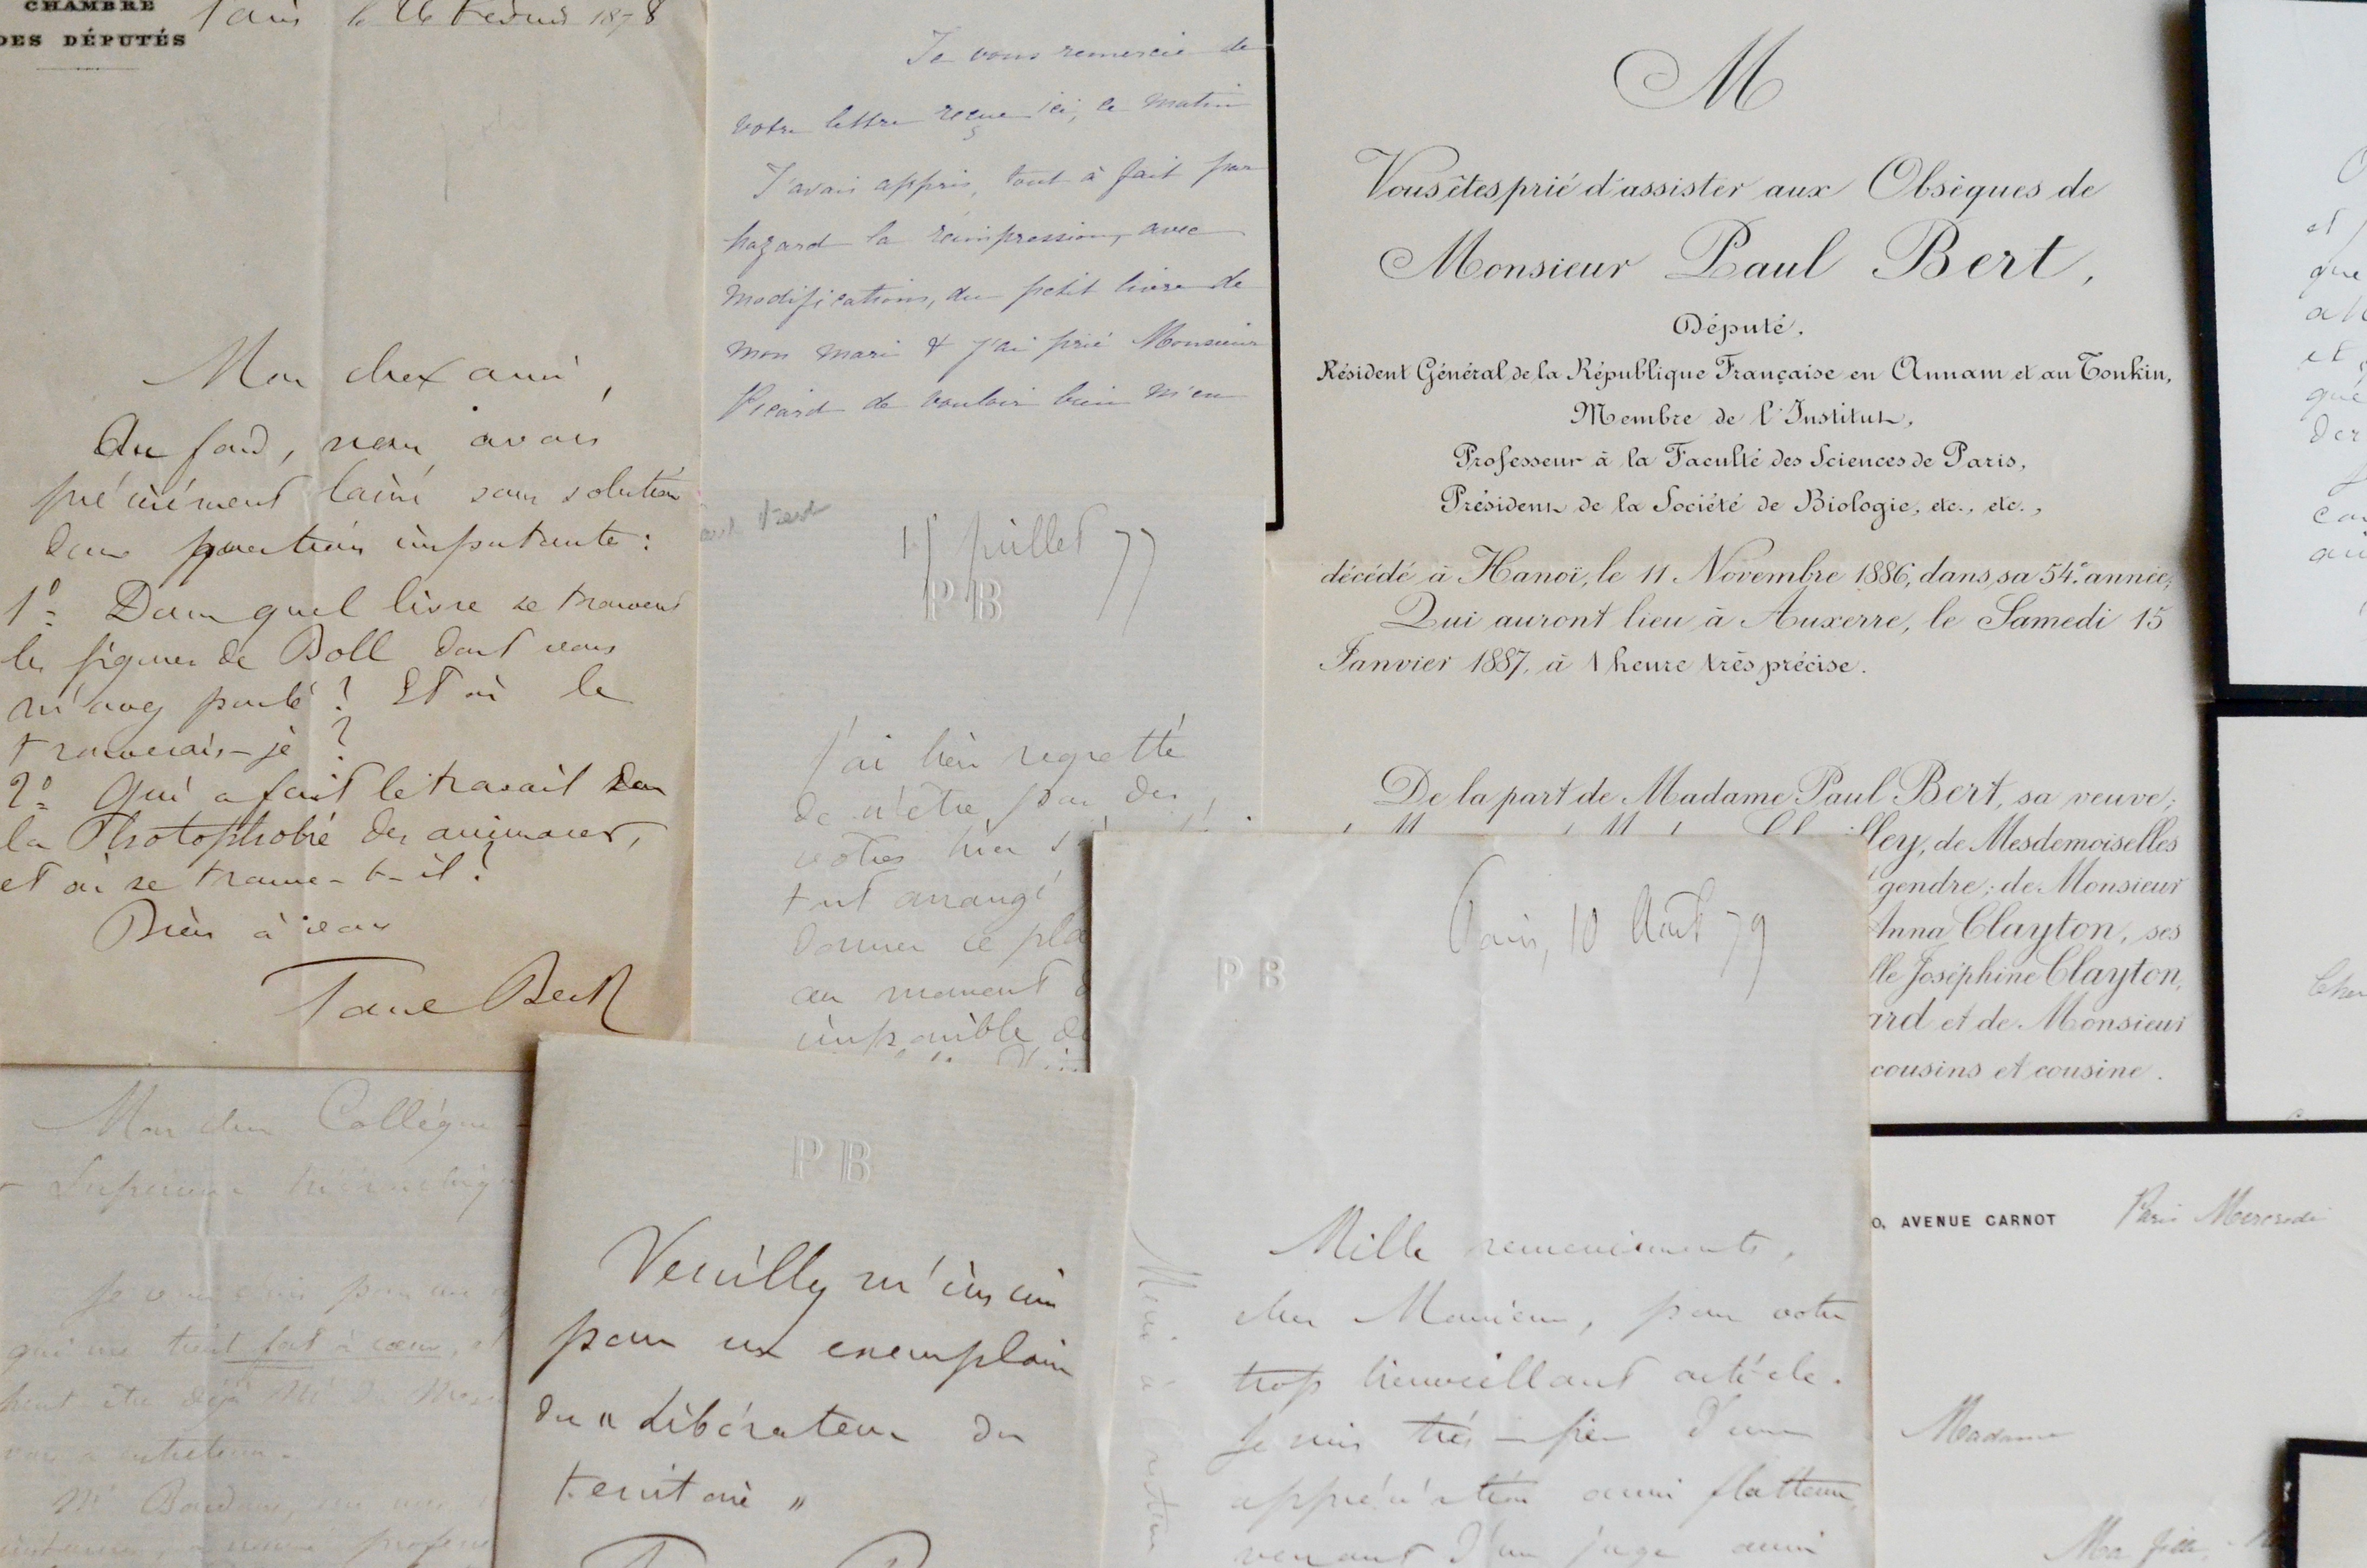 CHAMBRE
DES DÉPUTÉS
Paris le 26 1878
Mon cher ami,
Au fond, nous avons
précisément laissé sans solution
deux questions importantes :
1º Dans quel livre se trouvent
les figures de Boll dont vous
m'avez parlé ? Et où le
trouverais-je ?
2º Qui a fait le travail sur
la Photophobie des animaux,
et où se trouve-t-il ?
Bien à vous
Paul Bert
Je vous remercie de
votre lettre reçue ici, ce matin
J'avais appris, tout à fait par
hazard la réimpression, avec
modifications, du petit livre de
mon mari & j'ai prié Monsieur
Picard de vouloir bien m'en
juillet 77
PB
J'ai bien regretté
de n'être pas des
vôtres hier
tout arrangé
donner ce
au moment
impossible de
M
Vous êtes prié d'assister aux Obsèques de
Monsieur Paul Bert,
Député,
Résident Général de la République Française en Annam et au Tonkin,
Membre de l'Institut,
Professeur à la Faculté des Sciences de Paris,
Président de la Société de Biologie, etc., etc.,
décédé à Hanoï, le 11 Novembre 1886, dans sa 54e année,
Qui auront lieu à Auxerre, le Samedi 15
Janvier 1887, à 1 heure très précise.
De la part de Madame Paul Bert, sa veuve;
ley, de Mesdemoiselles
gendre; de Monsieur
Anna Clayton, ses
lle Joséphine Clayton,
ard et de Monsieur
cousins et cousine.
Mon cher Collègue
Je vous écris pour
qui me tient fort à cœur, et
peut être déjà
vous a entretenu.
PB
Veuillez m'inscrire
pour un exemplaire
du "Libérateur du
territoire"
PB
Paris, 10 Août 79
Mille remerciements,
cher Monsieur, pour votre
trop bienveillant article.
Je suis très fier d'une
appréciation aussi flatteuse,
venant d'un juge aussi
0, AVENUE CARNOT
Paris Mercredi
Madame
Ma fille
et
que
et
que